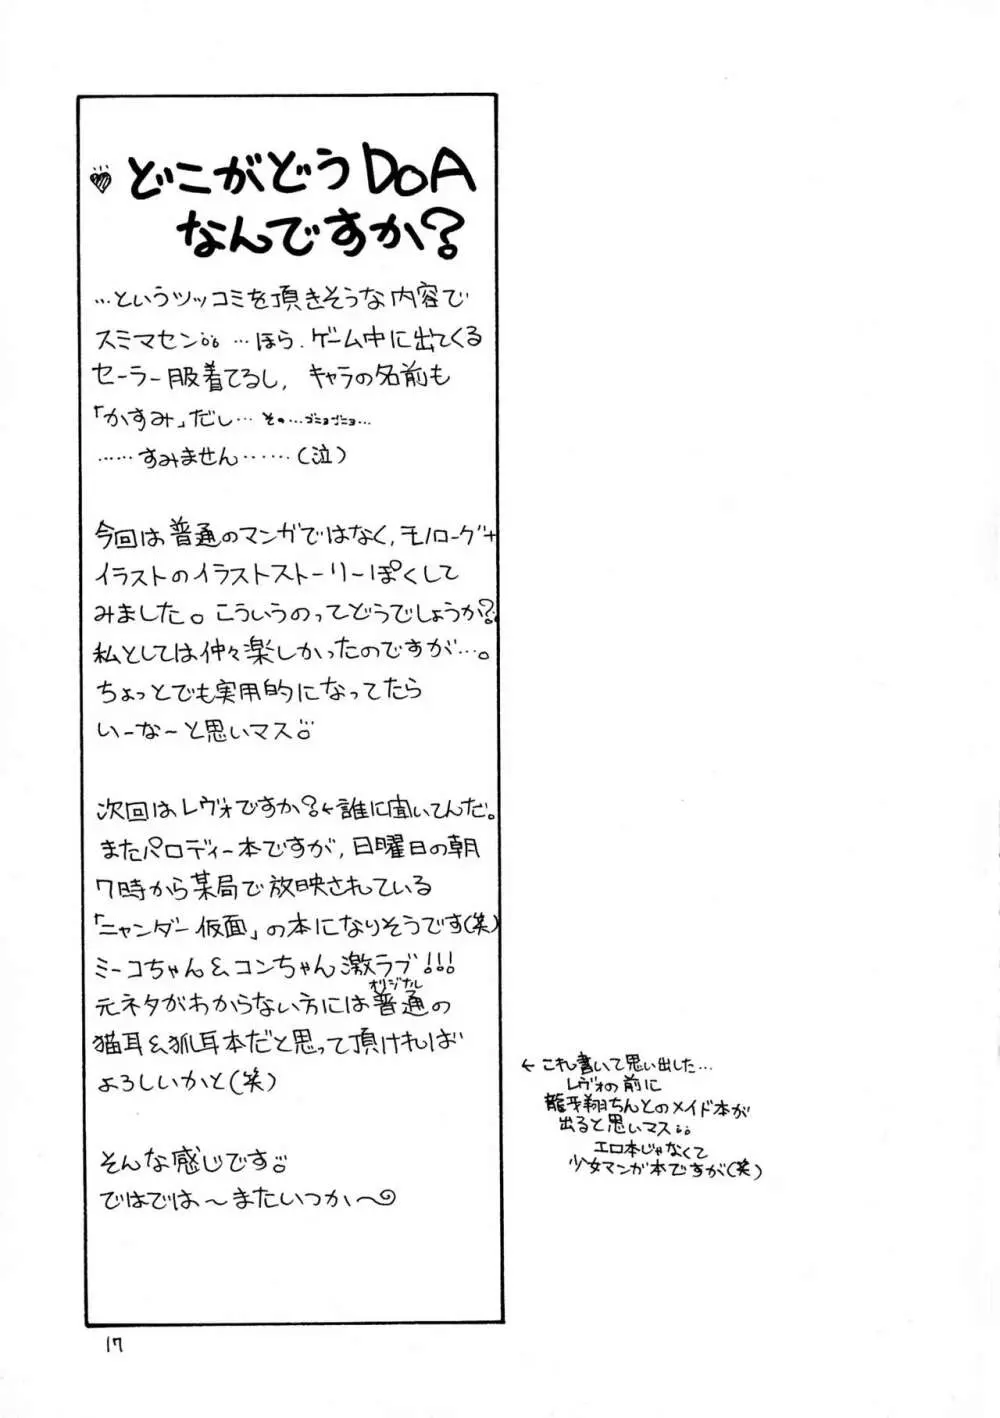 どこがどうDOA
なんですか?
…というツッコミを頂きそうな内容で
スミマセン…ほら、ゲーム中に出てくる
セーラー服着てるし、キャラの名前も
「かすみ」だし…その…ゴニョゴニョ…
……すみません……(泣)
今回は普通のマンガではなく、モノローグ+
イラストのイラストストーリーぽくして
みました。こういうのってどうでしょうか?
私としては仲々楽しかったのですが…。
ちょっとでも実用的になってたら
いーなーと思いマス
次回はレヴォですか?←誰に聞いてんだ。
またパロディー本ですが、日曜日の朝
7時から某局で放映されている
「ニャンダー仮面」の本になりそうです(笑)
ミーコちゃん&コンちゃん激ラブ!!!
オリジナル
元ネタがわからない方には普通の
猫耳&狐耳本だと思って頂ければ
よろしいかと(笑)
そんな感じです
ではでは〜またいつか〜
17
←これ書いて思い出した…
レヴォの前に
龍牙翔ちんとのメイド本が
出ると思いマス
エロ本じゃなくて
少女マンガ本ですが(笑)